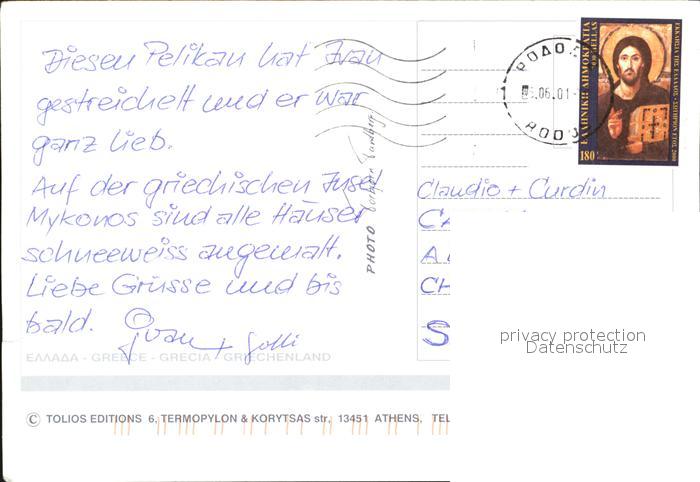 Diesen Pelikan hat Ivan
gestreichelt und er war
ganz lieb.
Auf der griechischen Insel
Mykonos sind alle Häuser
schneeweiss angemalt.
Liebe Grüsse und bis
bald. Ivan + Golli
ΕΛΛΑΔΑ - GREECE - GRECIA - GRIECHENLAND
© TOLIOS EDITIONS 6, TERMOPYLON & KORYTSAS str, 13451 ATHENS, TEL
PHOTO
ΡΟΔΟ
06.01
ΕΛΛΗΝΙΚΗ ΔΗΜΟΚΡΑΤΙΑ
HELLAS
180
Claudio + Curdin
CA
A
CH
S
privacy protection
Datenschutz